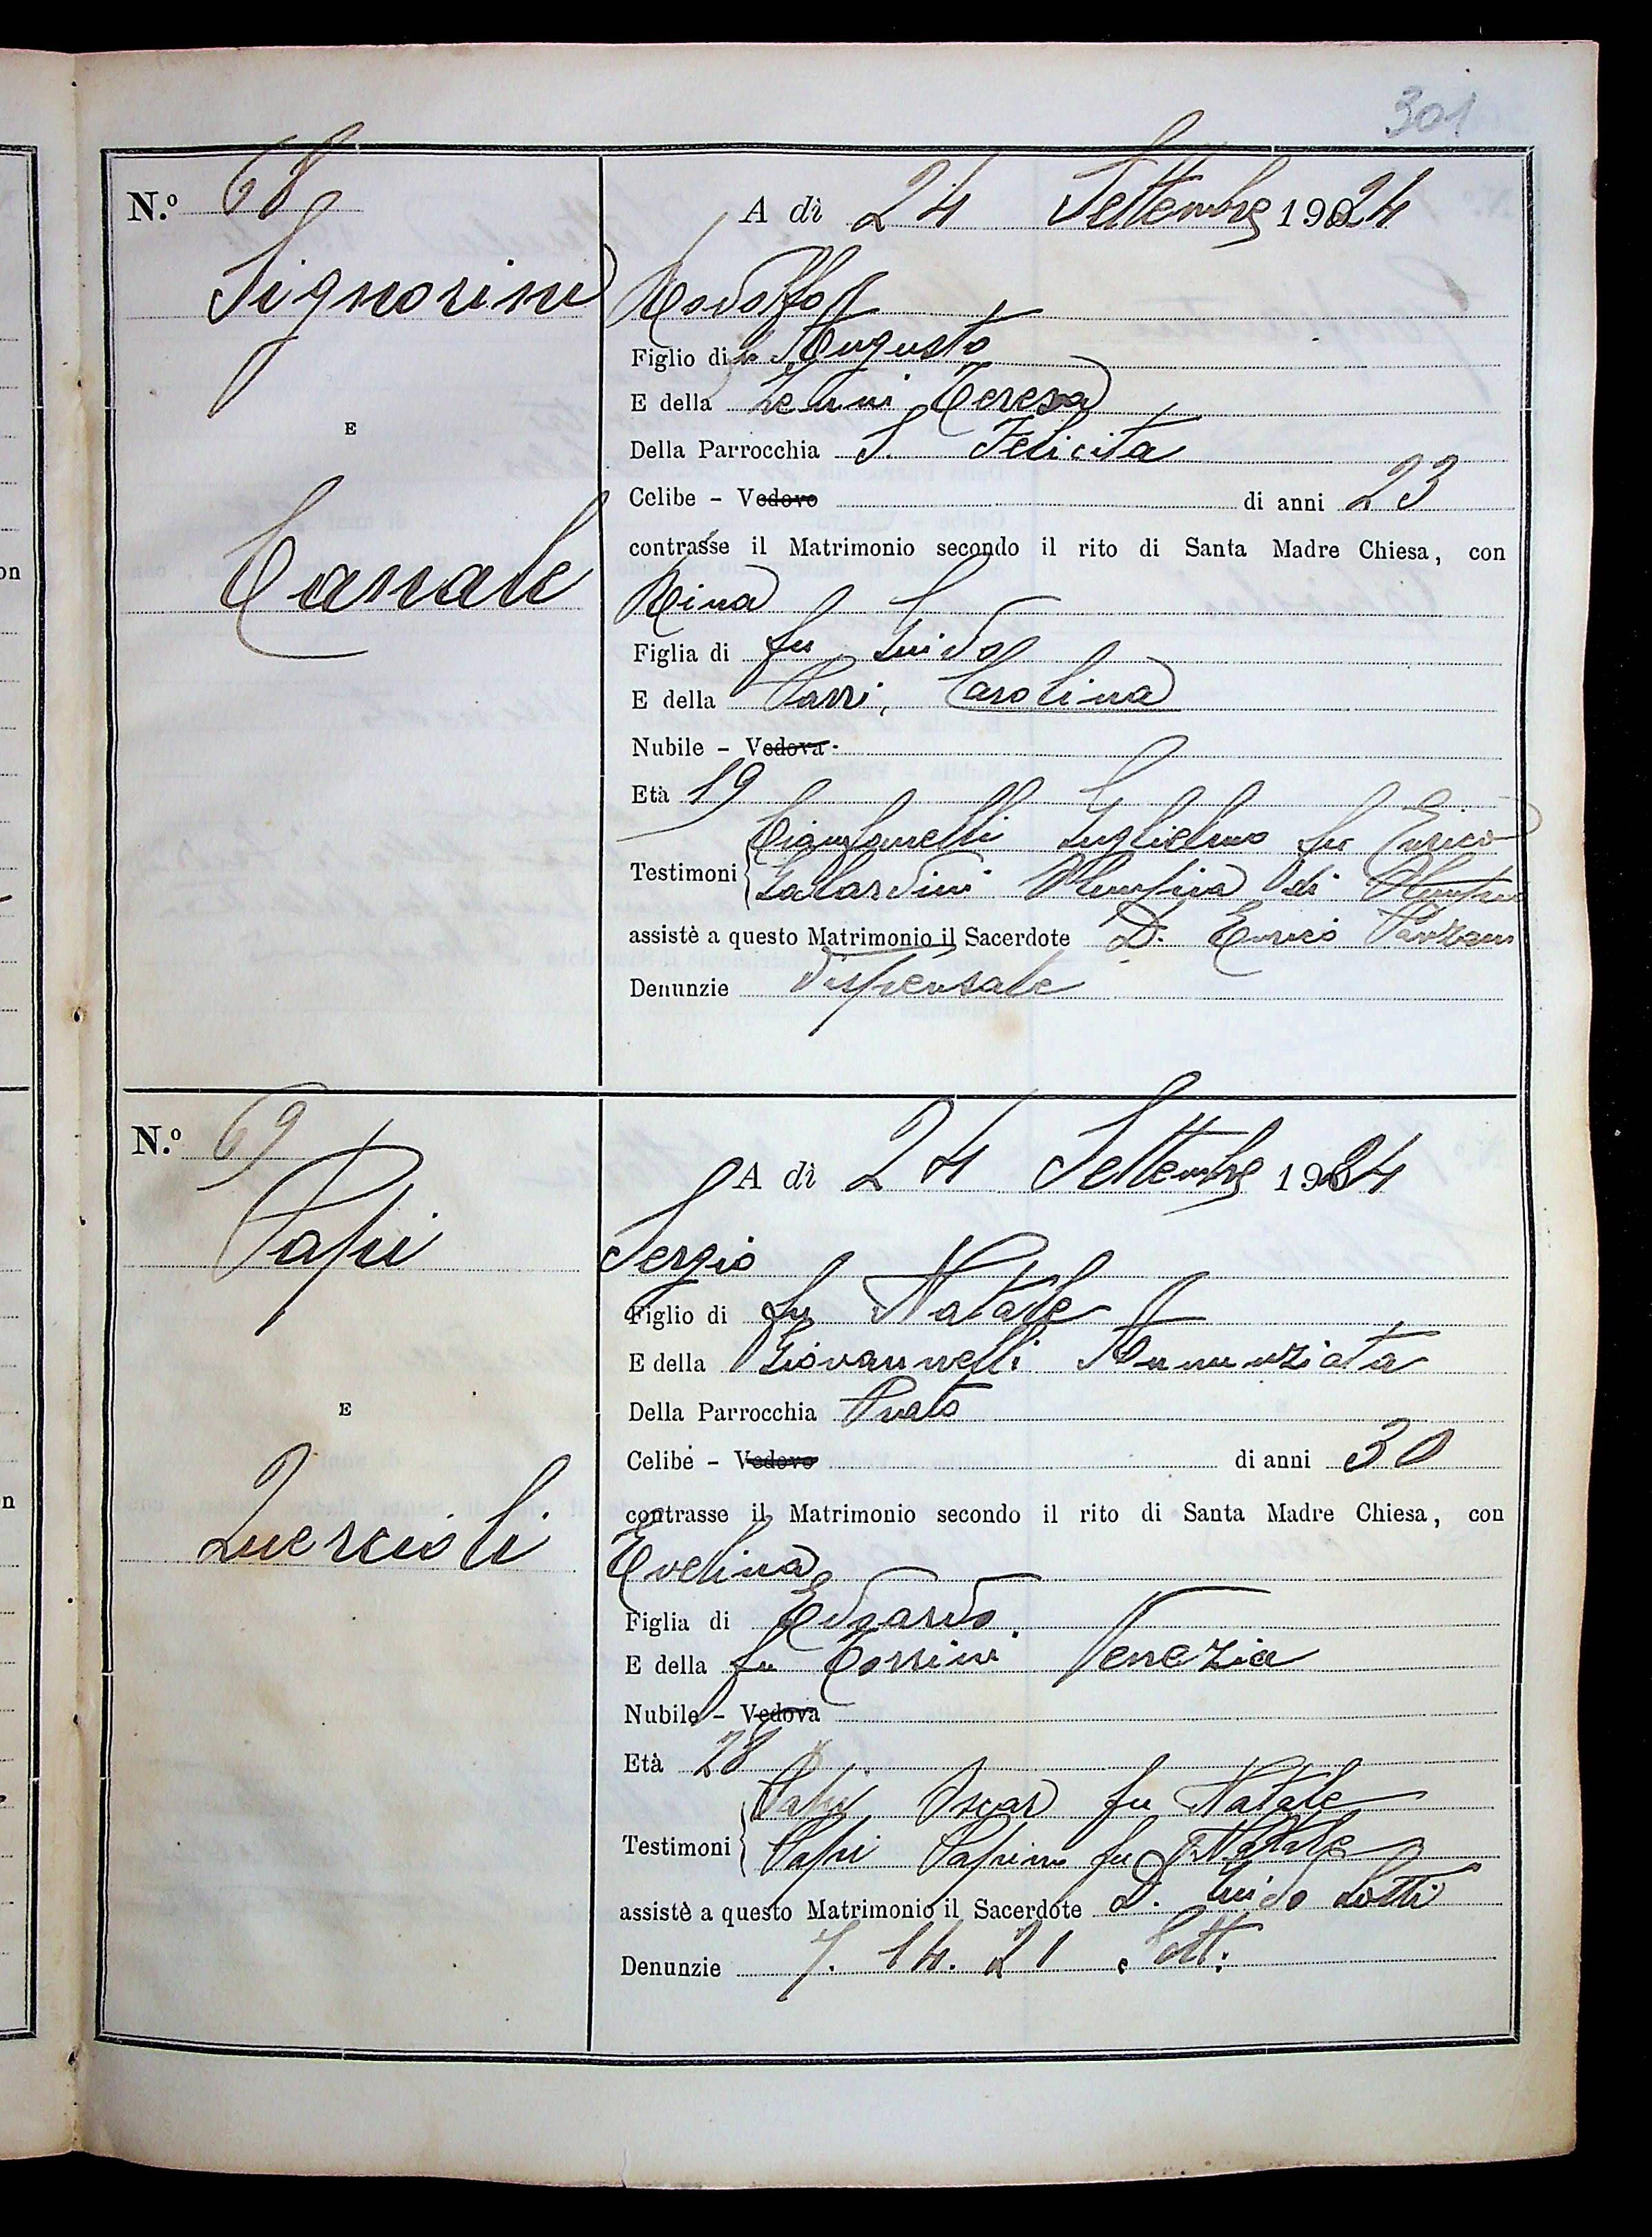 301
N.º 68
A dì 24 Settembre 1924
Signorini
Rodolfo
Figlio di fu Augusto
E della Zenni Teresa
E
Della Parrocchia S. Felicita
Celibe - Vedovo di anni 23
contrasse il Matrimonio secondo il rito di Santa Madre Chiesa, con
Canale
Rina
Figlia di fu Guido
E della Parri, Carolina
Nubile - Vedova
Età 19
Cianfanelli Guglielmo fu Enrico
Testimoni Galardini di
assistè a questo Matrimonio il Sacerdote D. Enrico
Denunzie dispensate
N.º 69
A dì 24 Settembre 1924
Papi
Sergio
Figlio di fu Natale
E della Giovannelli Annunziata
E
Della Parrocchia Prato
Celibe - Vedovo di anni 30
contrasse il Matrimonio secondo il rito di Santa Madre Chiesa, con
Quercioli
Evelina
Figlia di Edgardo
E della fu Corsini Venezia
Nubile - Vedova
Età 28
Papi Oscar fu Natale
Testimoni Papi fu Natale
assistè a questo Matrimonio il Sacerdote D. Guido Lotti
Denunzie 7. 14. 21 Sett: